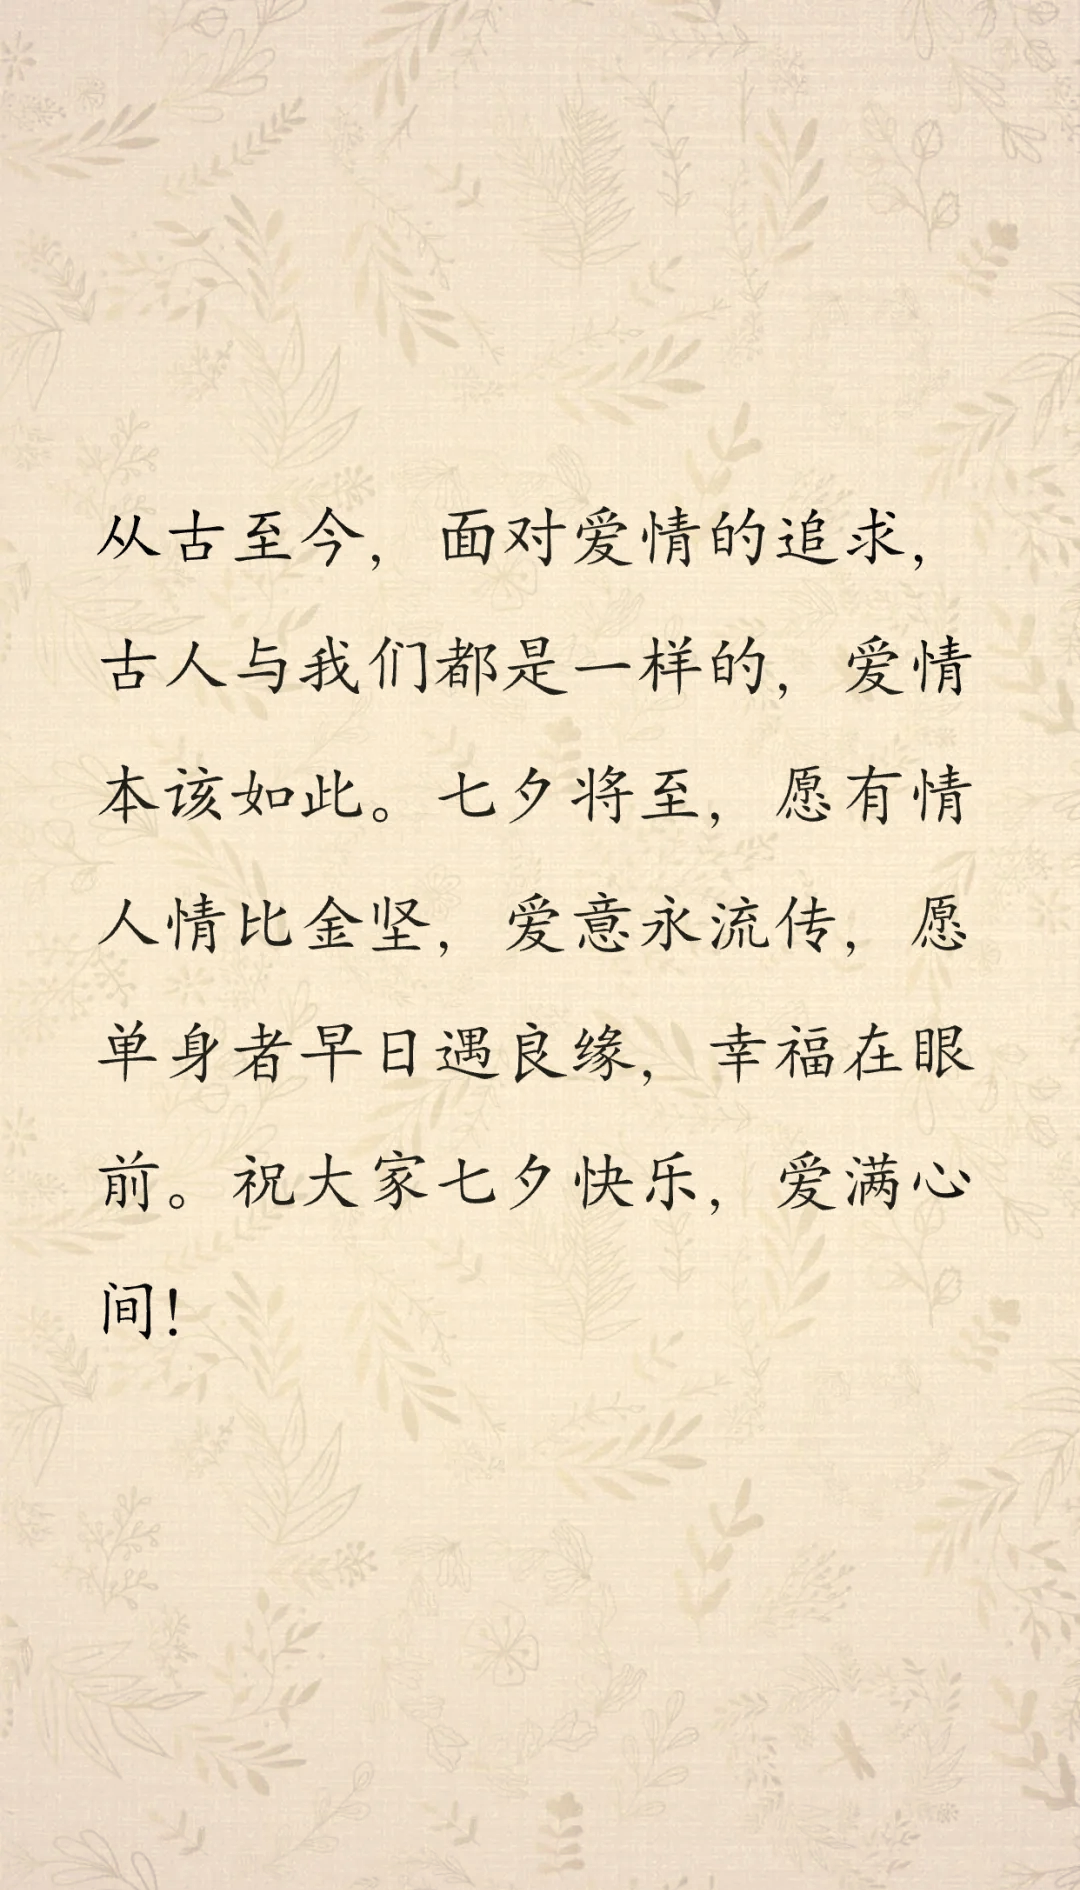 从古至今，面对爱情的追求，
古人与我们都是一样的，爱情
本该如此。七夕将至，愿有情
人情比金坚，爱意永流传，愿
单身者早日遇良缘，幸福在眼
前。祝大家七夕快乐，爱满心
间！